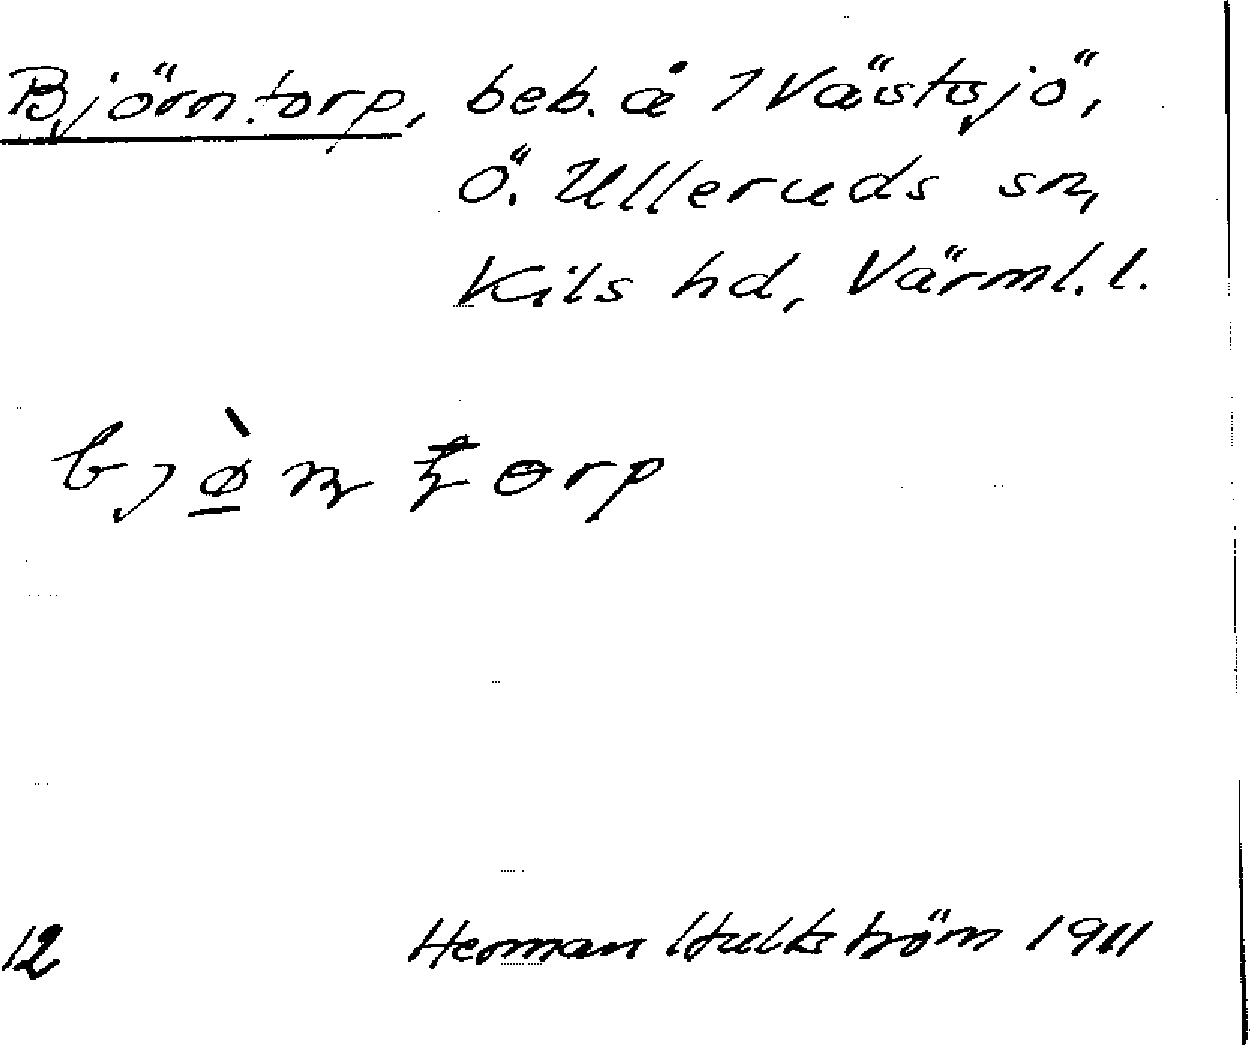 Björntorp, beb. å 7 Västsjö,
Ö. Ulleruds sn,
Kils hd, Värml. l.
12 Herman Hultström 1911